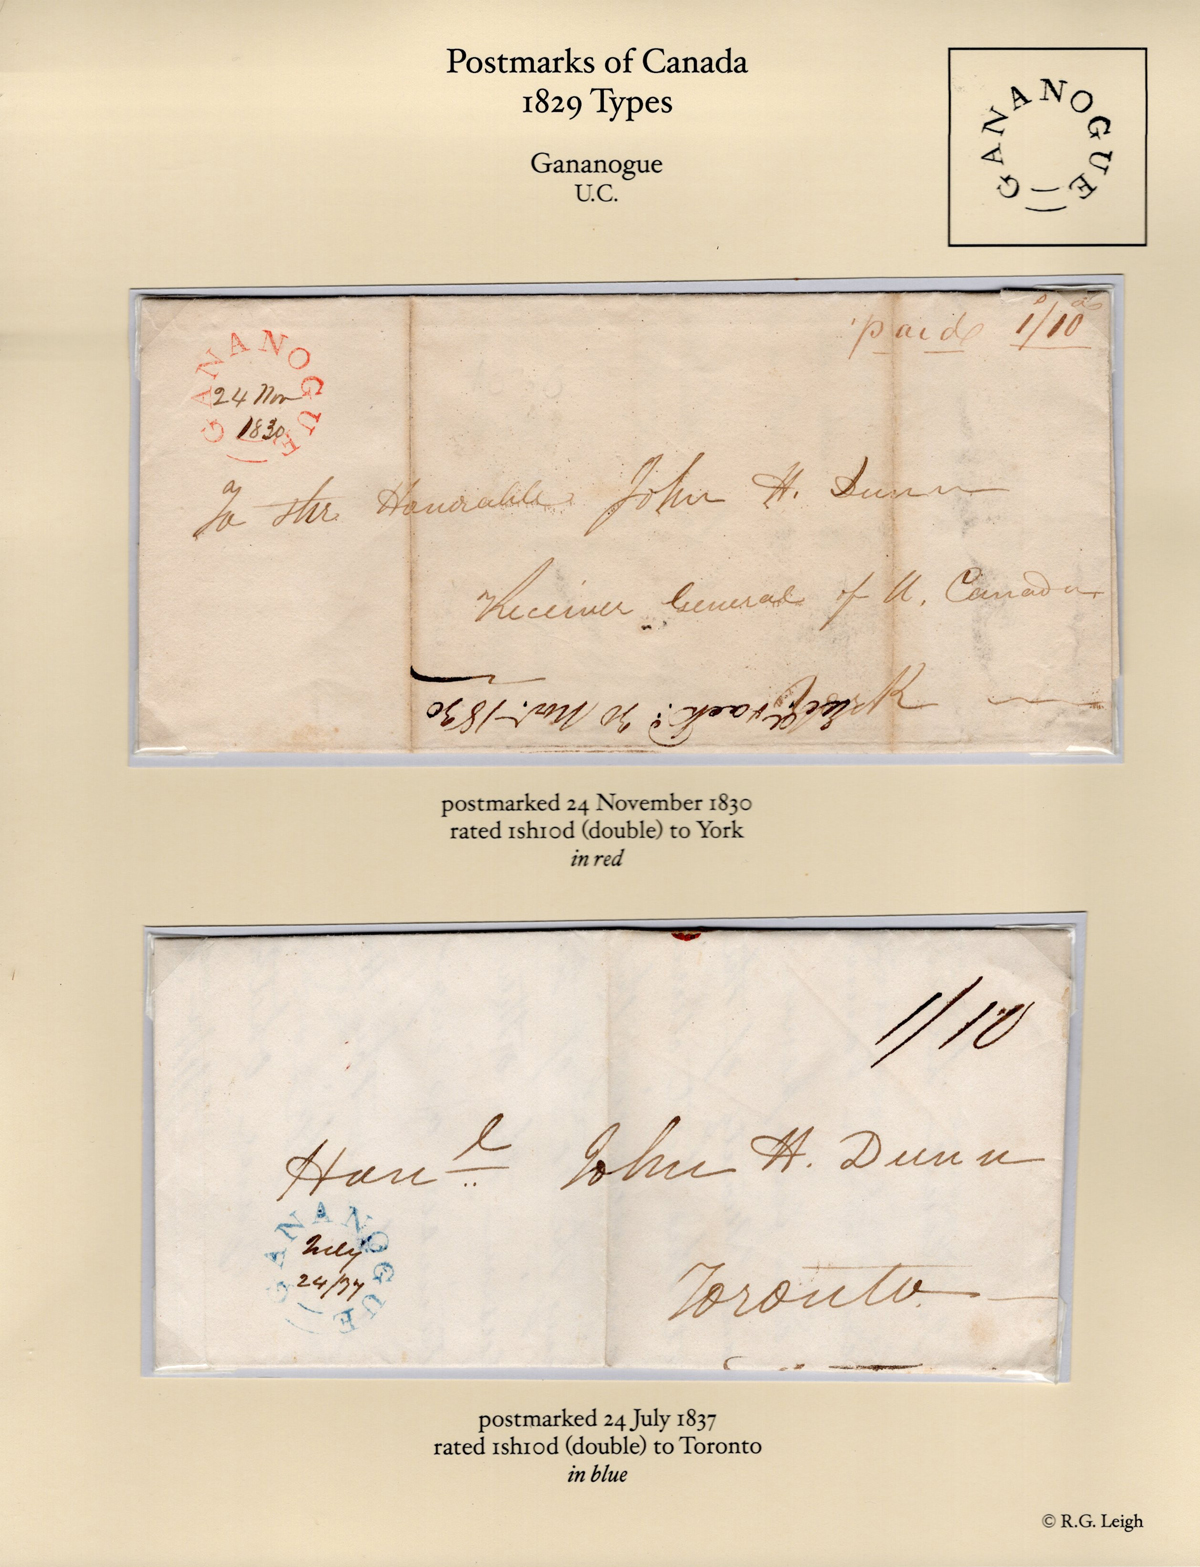 Postmarks of Canada
1829 Types
Gananogue
U.C.
GANANOGUE
GANANOGUE
24 Nov
1830
Paid 1/10
To the Honorable John H. Dunn
Receiver General of U. Canada
30 Novr. 1830
postmarked 24 November 1830
rated 1sh10d (double) to York
in red
1/10
Honle John H. Dunn
GANANOGUE
July
24/37
Toronto
postmarked 24 July 1837
rated 1sh10d (double) to Toronto
in blue
© R.G. Leigh